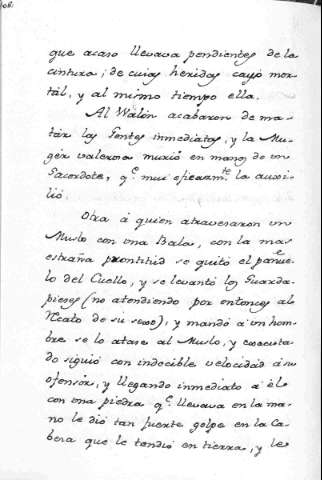 que acaso llevava pendientes de la
cintura; de cuias heridas cayó mor-
tál, y al mismo tiempo ella.
Al Walón acabaron de ma-
tár las Gentes inmediatas, y la Mu-
gér valerosa murió en manos de un
Sacerdote, qe. mui eficazmte. la auxi-
lió.
Otra á quien atravesaron un
Muslo con una Bala, con la mas
estraña prontitud se quitó el pañue-
lo del Cuello, y se levantó los Guarda-
pieses (no atendiendo por entonces al
Recato de su sexo), y mandó á un hom-
bre se lo atase al Muslo, y executa-
do siguió con indecible velocidad á su
ofensór, y llegando inmediato á él
con una piedra qe. llevava en la ma-
no le dió tan fuerte golpe en la Ca-
beza que le tendió en tierra, y le